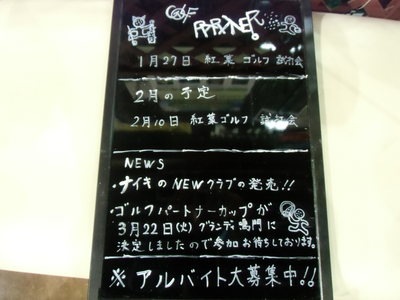 GOLF
PARTNER
1月27日 紅葉ゴルフ 試打会
2月の予定
2月10日 紅葉ゴルフ 試打会
NEWS
・ナイキのNEWクラブの発売!!
・ゴルフパートナーカップが
3月22日(火) グランディ鳴門に
決定しましたので参加お待ちしております。
※ アルバイト大募集中!!